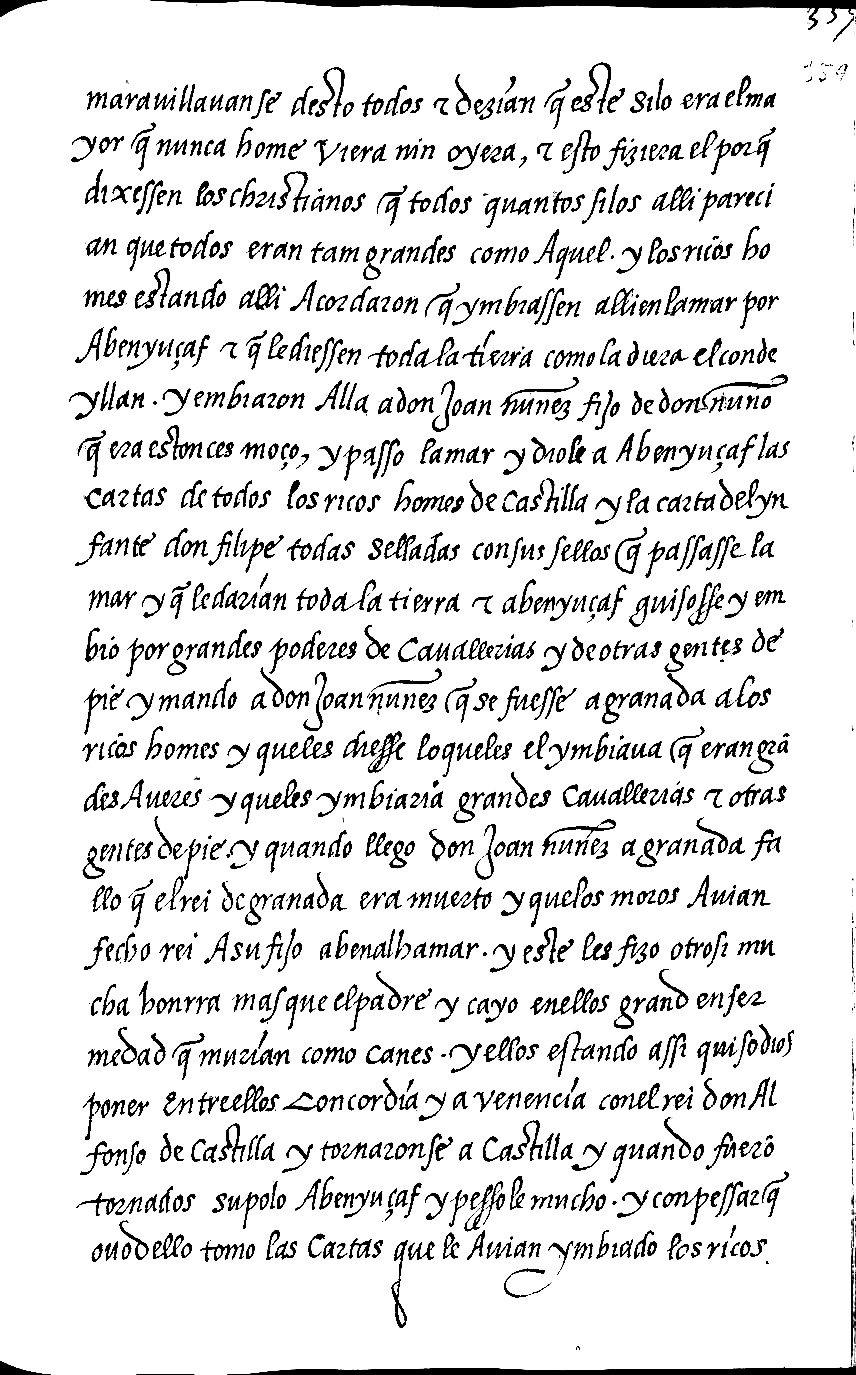 359
159
marauillauanse desto todos τ dezían q̃ este silo era el ma
yor q̃ nunca home viera nin oyera, τ esto fiziera el porq̃
dixessen los christianos q̃ todos quantos silos alli pareci
an que todos eran tam grandes como Aquel. y los ricos ho
mes estando alli Acordaron q̃ ymbiassen allien la mar por
Abenyuçaf τ q̃ le diessen toda la tíerra como la diera el conde
yllan. y embiaron Alla a don Joan nunez fijo de don nuno
q̃ era estonces moço, y passo la mar y diole a Abenyuçaf las
Cartas de todos los ricos homes de Castilla y la carta del yn
fante don filipe todas selladas con sus sellos q̃ passasse la
mar y q̃ le darían toda la tierra τ abenyuçaf guisosse y em
bio por grandes poderes de Cauallerias y de otras gentes de
pie y mando a don Joan nunez q̃ se fuesse a granada a los
ricos homes y queles diesse lo queles el ymbiaua q̃ eran grã
des Aueres y queles ymbiaria grandes Cauallerias τ otras
gentes de pie. y quando llego don Joan nunez a granada fa
llo q̃ el rei de granada era muerto y quelos moros Auian
fecho rei A su fijo abenalhamar. y este les fizo otrosi mu
cha honrra mas que el padre y cayo enellos grand enfer
medad q̃ murían como canes. y ellos estando assi quiso dios
poner Entre ellos Concordía y avenencía con el rei don Al
fonso de Castilla y tornaronse a Castilla y quando fuerõ
tornados supolo Abenyuçaf y pessole mucho. y con pessar q̃
ouo dello tomo las Cartas que le Auian ymbiado los rícos